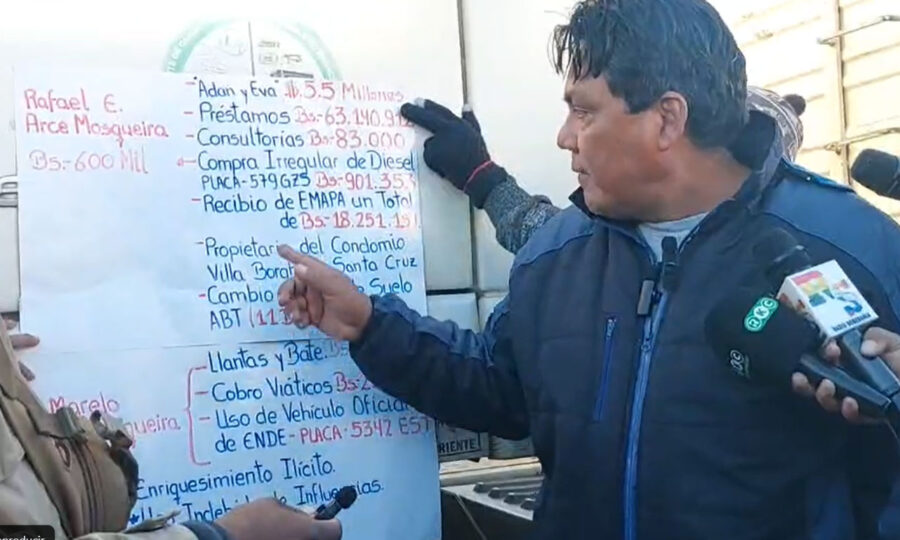 Rafael E.
Arce Mosqueira
Bs.- 600 Mil
- "Adan y Eva" $. 5.5 Millones
- Préstamos Bs- 63.140.91
- Consultorías Bs- 83.000
- Compra Irregular de Diesel
PLACA - 579GZS Bs- 901.35
- Recibio de EMAPA un Total
de Bs- 18.251.151
- Propietario del Condomio
Villa Santa Cruz
- Cambio de Suelo
ABT (11
- Llantas y Bate. Bs
- Cobro Viáticos Bs-
- Uso de Vehículo Oficial
de ENDE - PLACA - 5342 EST
Enriquesimiento Ilícito.
Indebido de Influencias.
RIENTE
producir